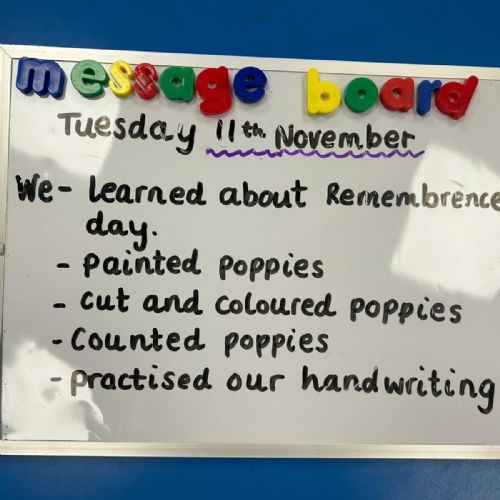 message board
Tuesday 11th November
We - Learned about Remembrence
day.
- Painted poppies
- Cut and coloured poppies
- Counted poppies
- practised our handwriting